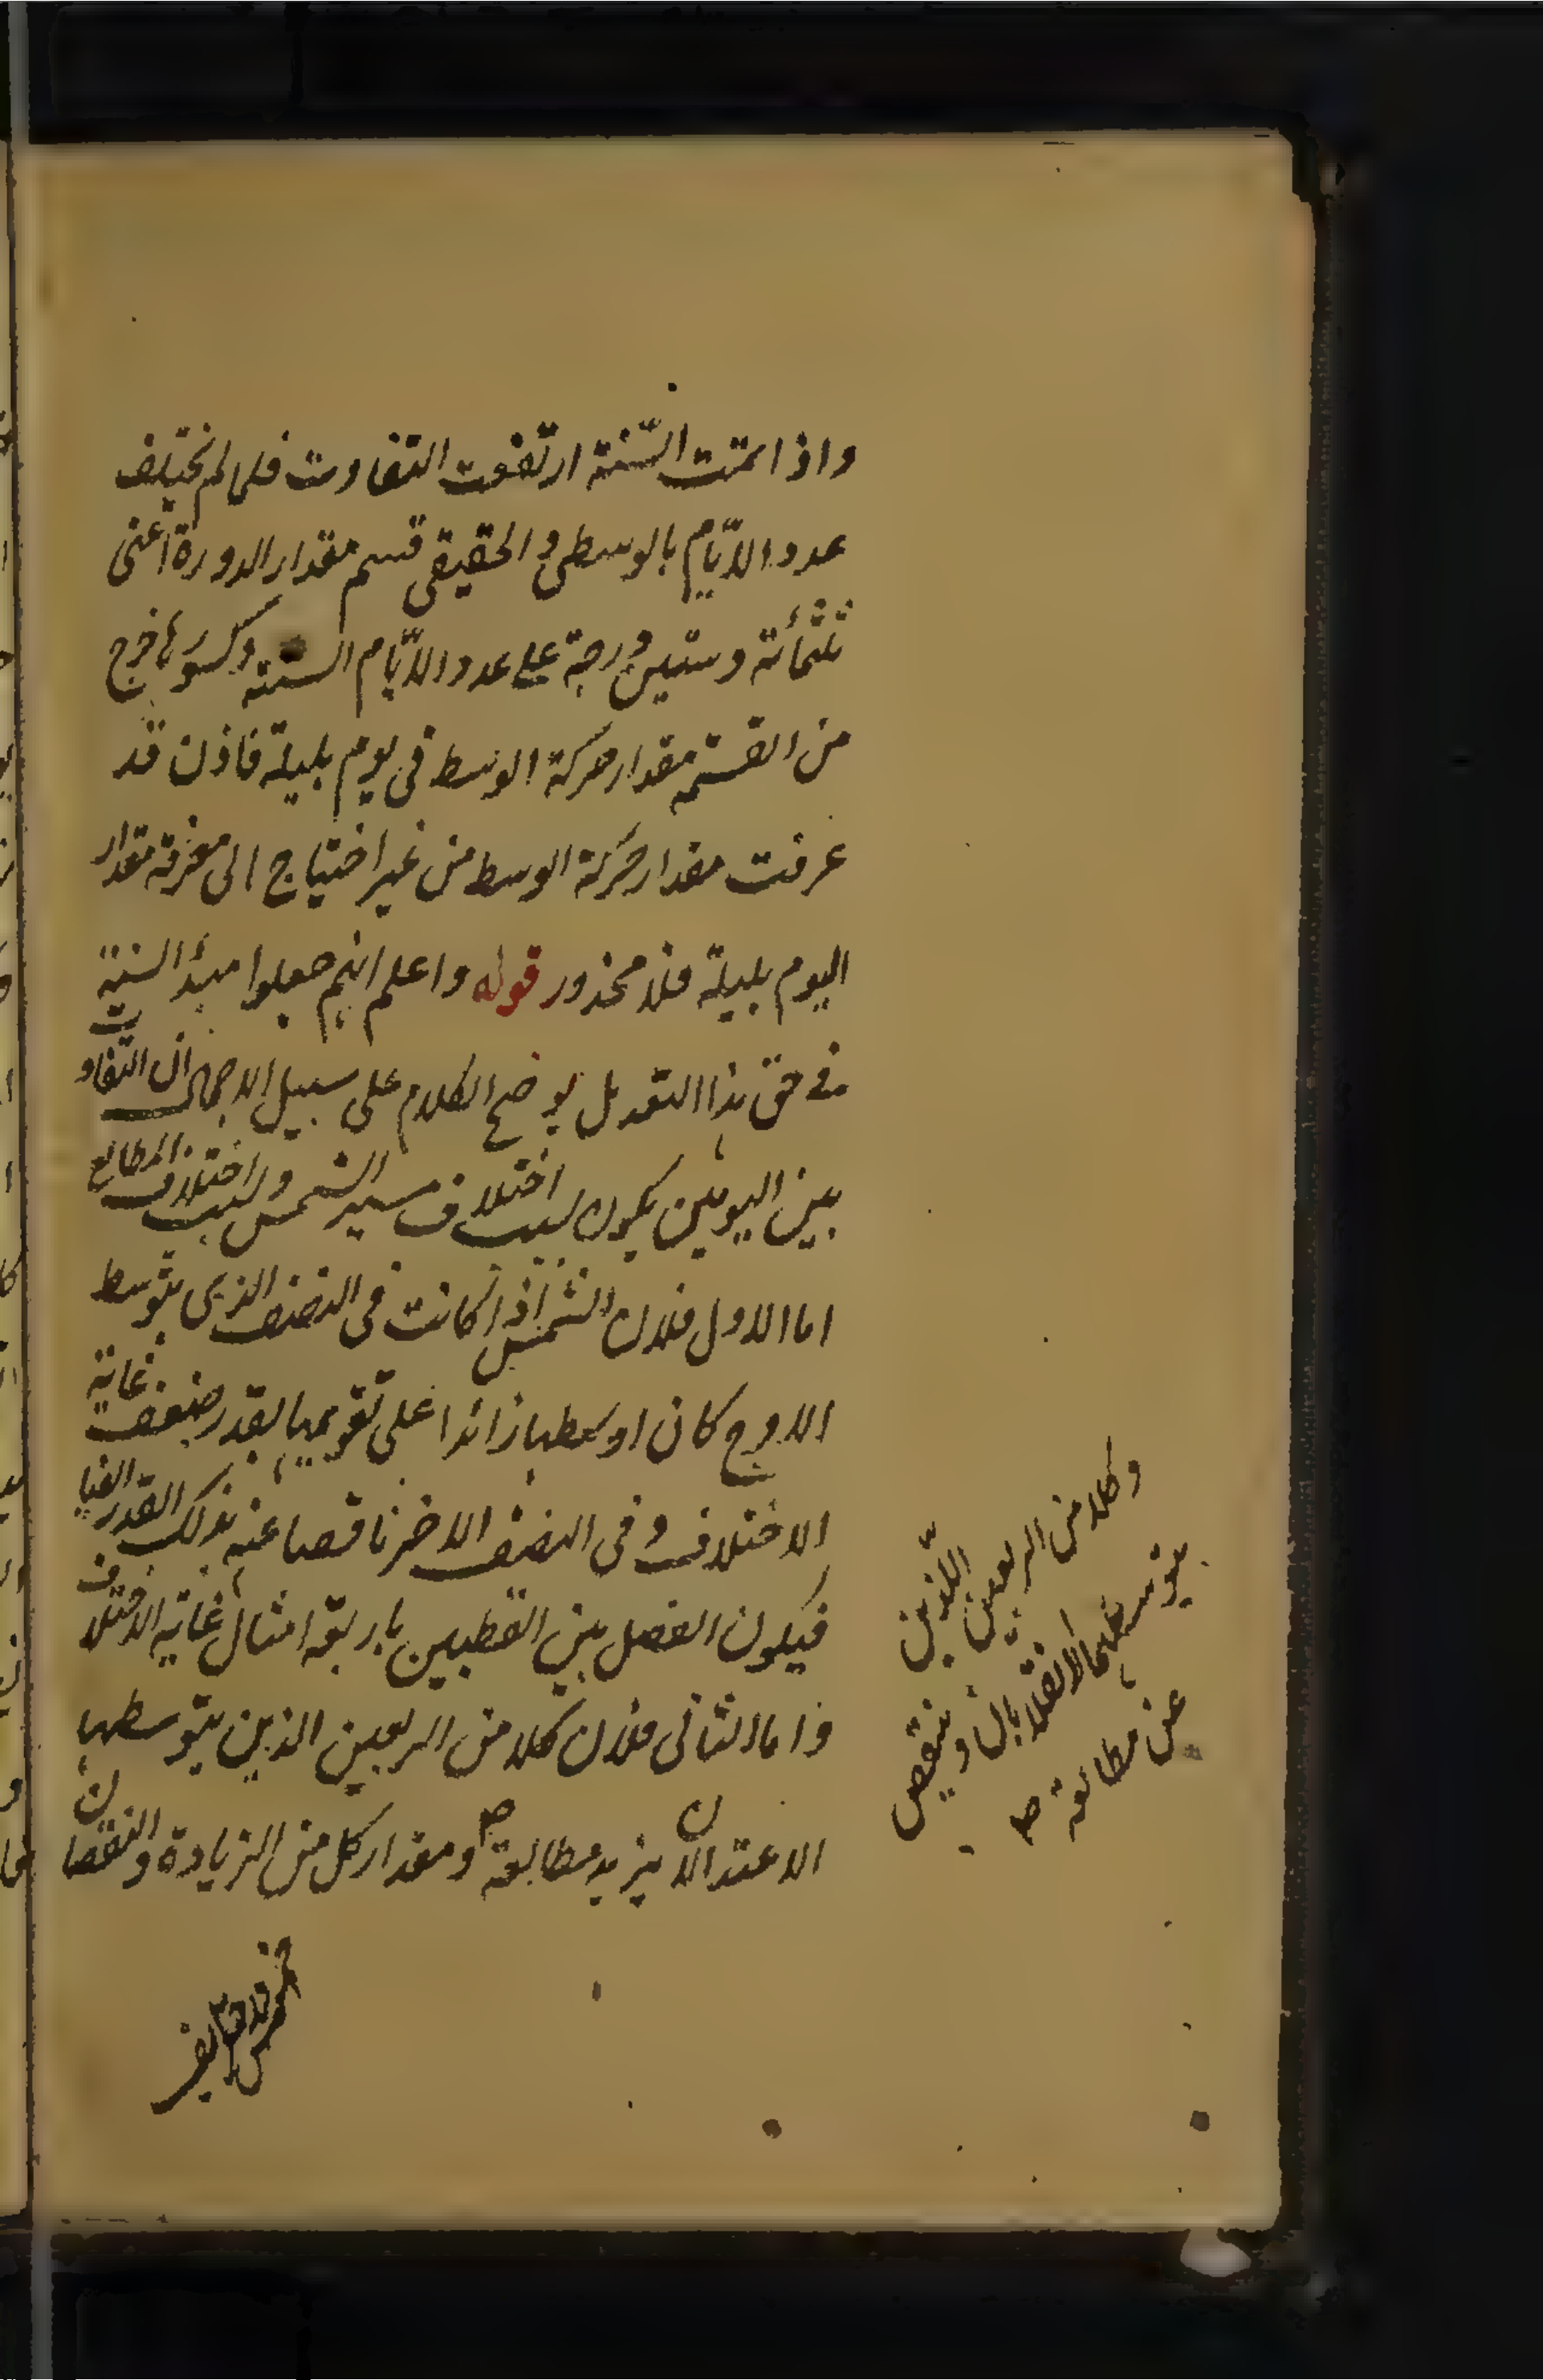 واذا تمت السّنة ارتفعت التفاوت فلما لم يختلف
عدد الايّام بالوسطى والحقيقى قسم مقدار الدورة اعنى
ثلثمائة وستين درجة على عدد الايّام السنة وكسورها خرج
من القسمة مقدار حركة الوسط فى يوم بليلة فاذن قد
عرفت مقدار حركة الوسط من غير احتياج الى معرفة مقدار
اليوم بليلة فلا محذور قوله واعلم انهم جعلوا مبدأ السنة
فى حق هذا التعديل يوضح الكلام على سبيل الاجمال ان التفاوت
بين اليومين يكون بسبب اختلاف مسير الشمس وبسبب اختلاف المطالع
اما الاول فلان الشمس اذا كانت فى النصف الذى يتوسط
الاوج كان اوسطها زائدا على تقويمها بقدر ضعف غاية
الاختلاف وفى النصف الاخر ناقصا عنه بذلك القدر ايضا
فيكون الفضل بين القطبين باربعة امثال غاية الاختلاف
واما الثانى فلان كلا من الربعين الذين يتوسطها
الاعتدالان يزيد مطالعة ومقدار كل من الزيادة والنقصان
وكلا من الربعين اللّذين
يتوسطهما الانقلابان وينتقص
عن مطالعة صح